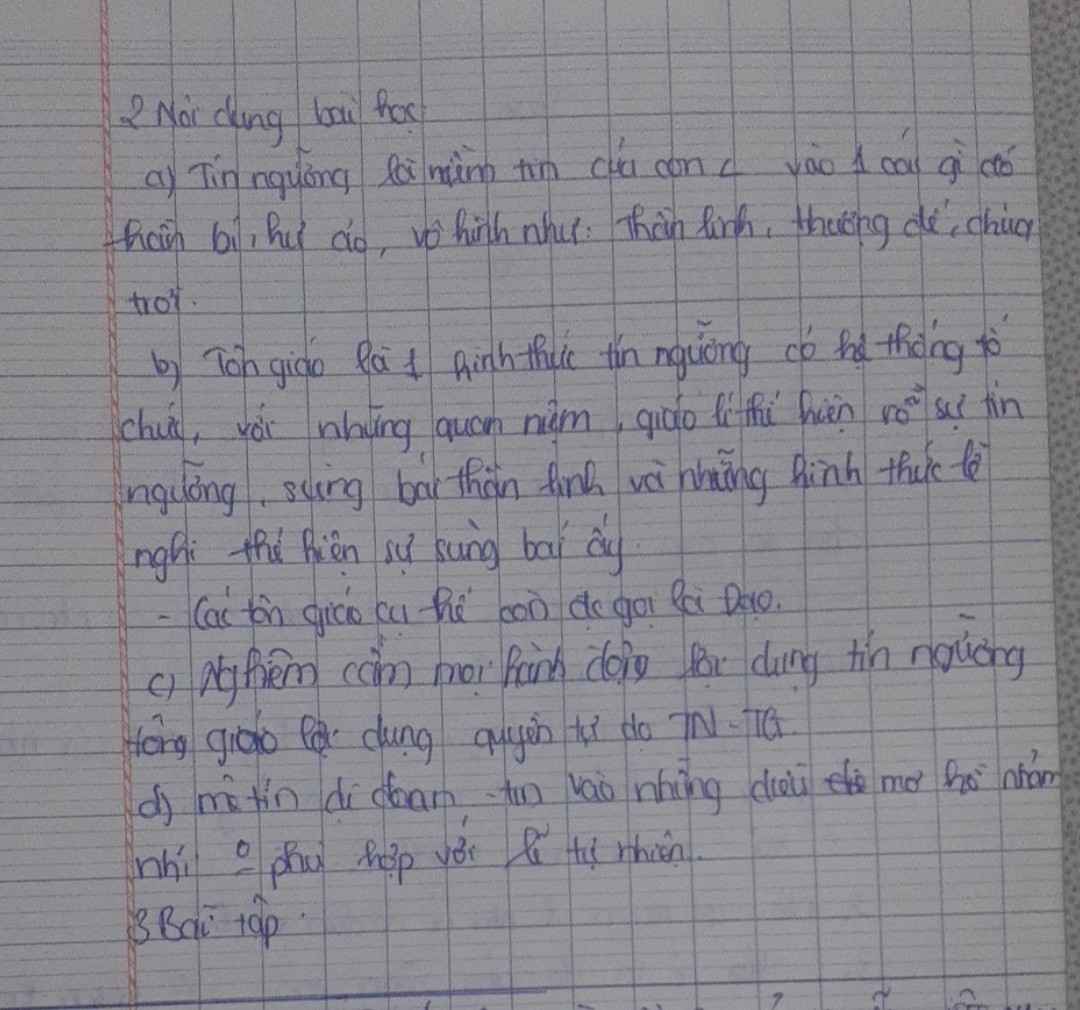 2 Nội dung bài học
a) Tín ngưỡng là niềm tin của con vào 1 cái gì đó
thần bí, hư ảo, vô hình như: thần linh, thượng đế, chúa
trời.
b) Tôn giáo là 1 hình thức tín ngưỡng có hệ thống tổ
chức, với những quan niệm, giáo lí thể hiện rõ sự tín
ngưỡng, sùng bái thần linh và những hình thức lễ
nghi thể hiện sự sùng bái ấy.
- Các tôn giáo cụ thể còn đc gọi là Đạo.
c) Nghiêm cấm mọi hành động lợi dụng tín ngưỡng
tông giáo lợi dụng quyền tự do TN-TG.
d) mê tín dị đoan tin vào những điều mơ hồ nhảm
nhí phù hợp với lẽ tự nhiên.
3 Bài tập.